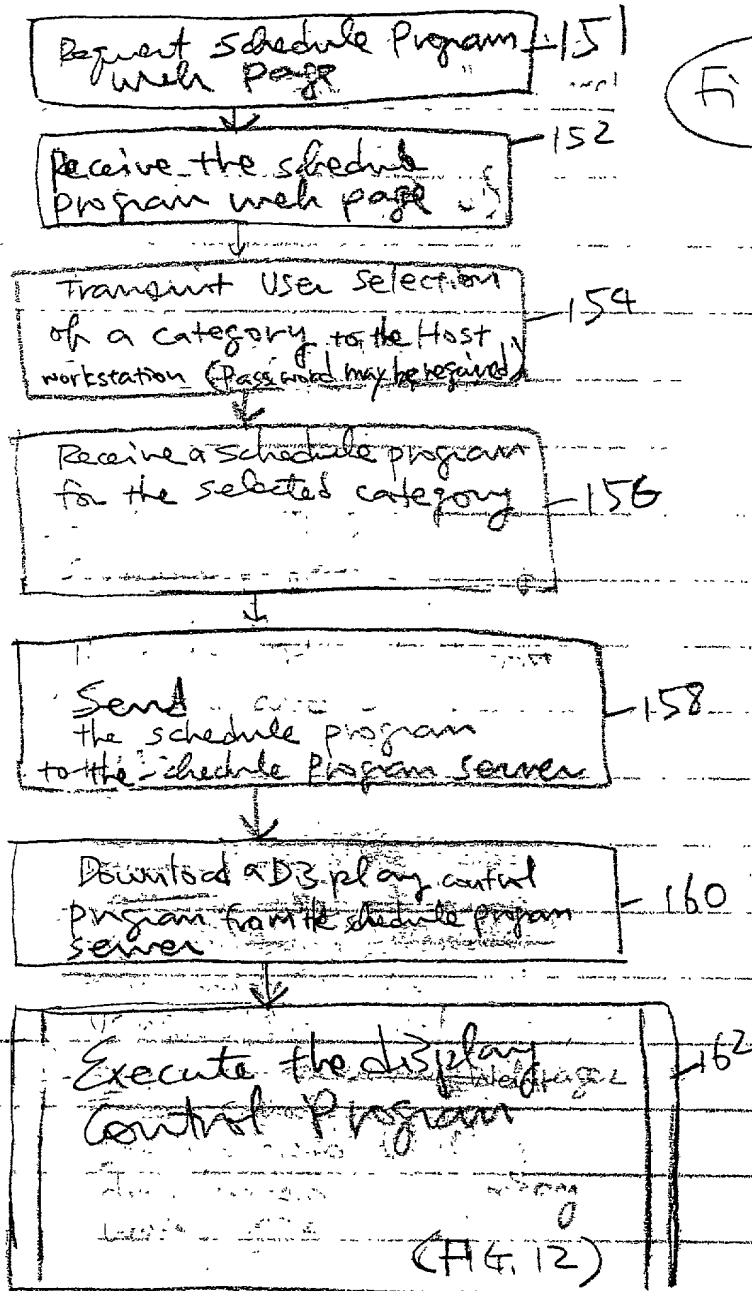 Request Schedule Program
web page
151
Fi
152
Receive the schedule
program web page
Transmit User Selection
of a category to the Host
workstation (Password may be required)
154
Receive a schedule program
for the selected category
156
Send
the schedule program
to the schedule program server
158
Download a Display control
program from the schedule program
server
160
Execute the display
Control Program
162
(FIG. 12)